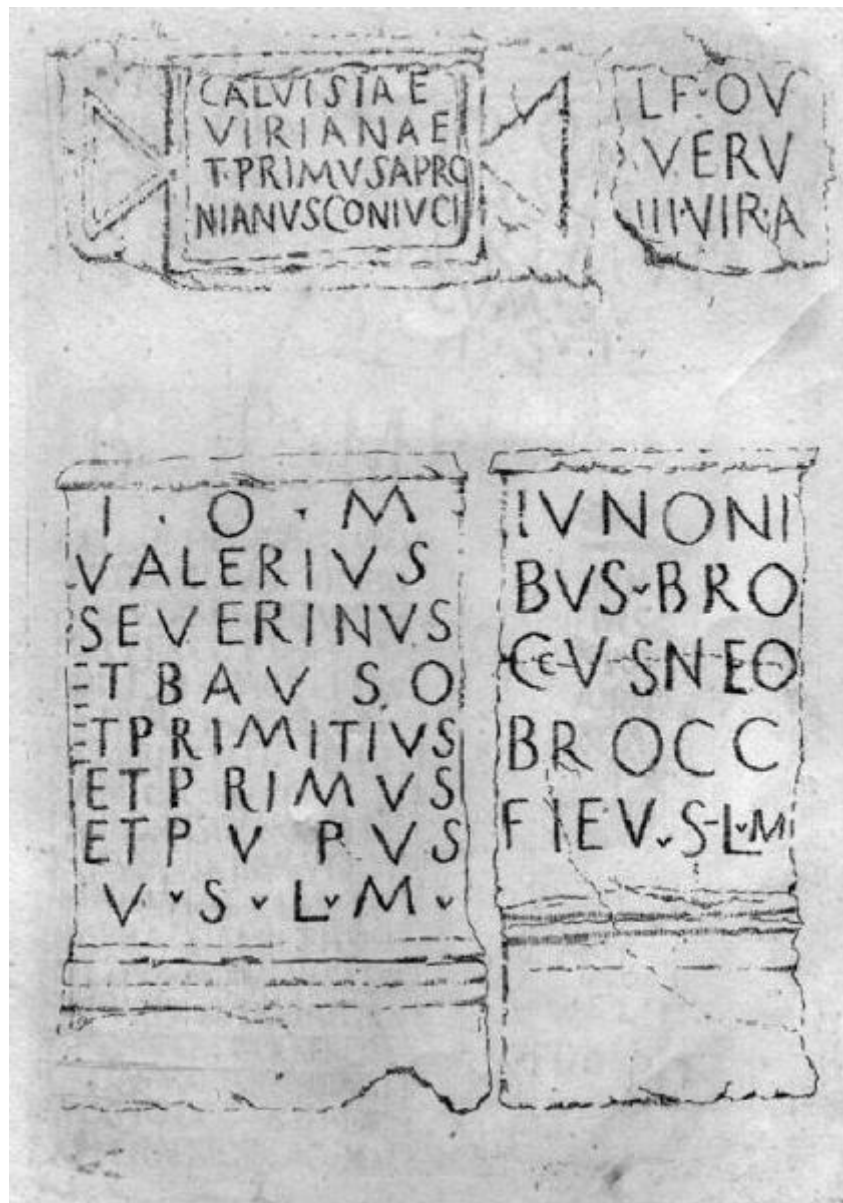 CALVISIAE
VIRIANAE
T·PRIMVSAPRO
NIANVSCONIVCI
LF·OV
VERV
III·VIR·A
I·O·M
VALERIVS
SEVERINVS
ETBAVSO
ETPRIMITIVS
ETPRIMVS
ETPVPVS
V·S·L·M·
IVNONI
BVS·BRO
CCVSNEO
BROCC
FIEV·S·L·M